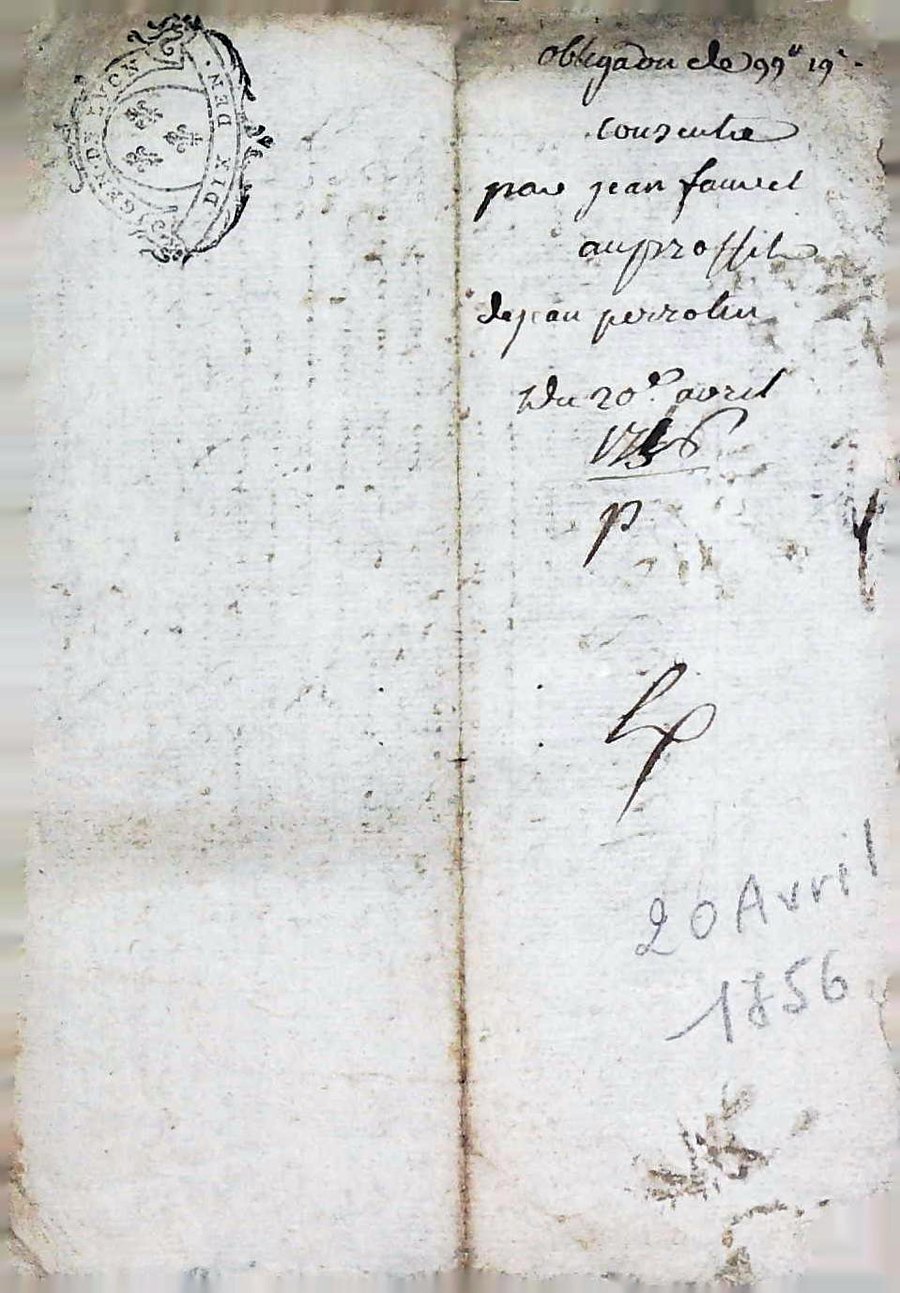 DIX DEN.
obligaōn de 99ᵗᵗ 19ˢ
consentie
par jean fauvet
au proffit
de jean perrotin
Du 20ᵉ avril
1756
p
20 Avril
1756